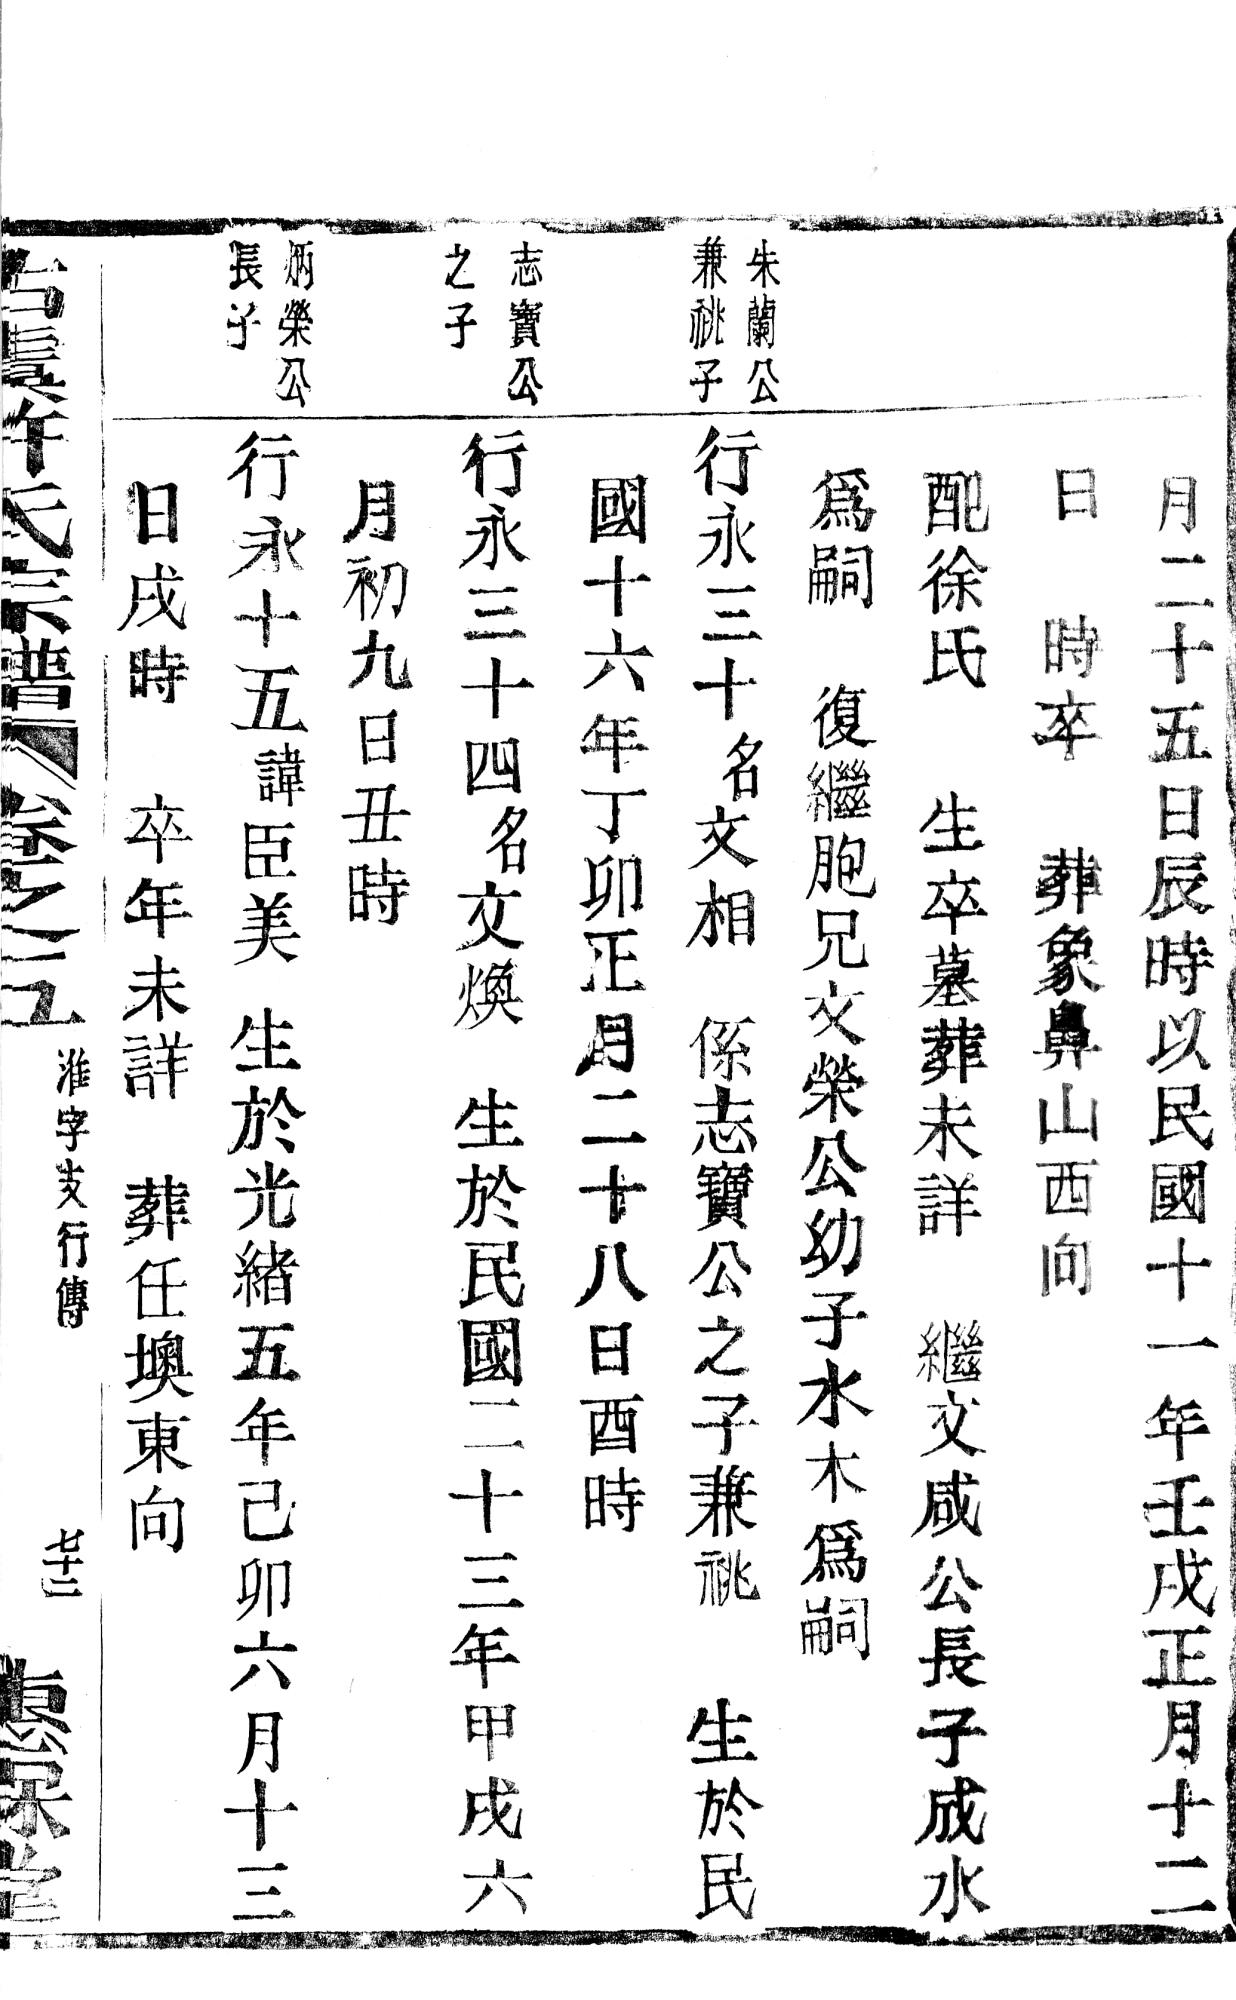 月二十五日辰時以民國十一年壬戌正月十二
日　時卒　葬象鼻山西向
配徐氏　生卒墓葬未詳　繼文咸公長子成水
爲嗣　復繼胞兄文榮公幼子水木爲嗣
朱蘭公
兼祧子
行永三十名文相　係志寶公之子兼祧　生於民
國十六年丁卯正月二十八日酉時
志寶公
之子
行永三十四名文煥　生於民國二十三年甲戌六
月初九日丑時
炳榮公
長子
行永十五諱臣美　生於光緒五年己卯六月十三
日戌時　卒年未詳　葬任墺東向
古虞許氏宗譜　卷之五　淮字支行傳　七十二